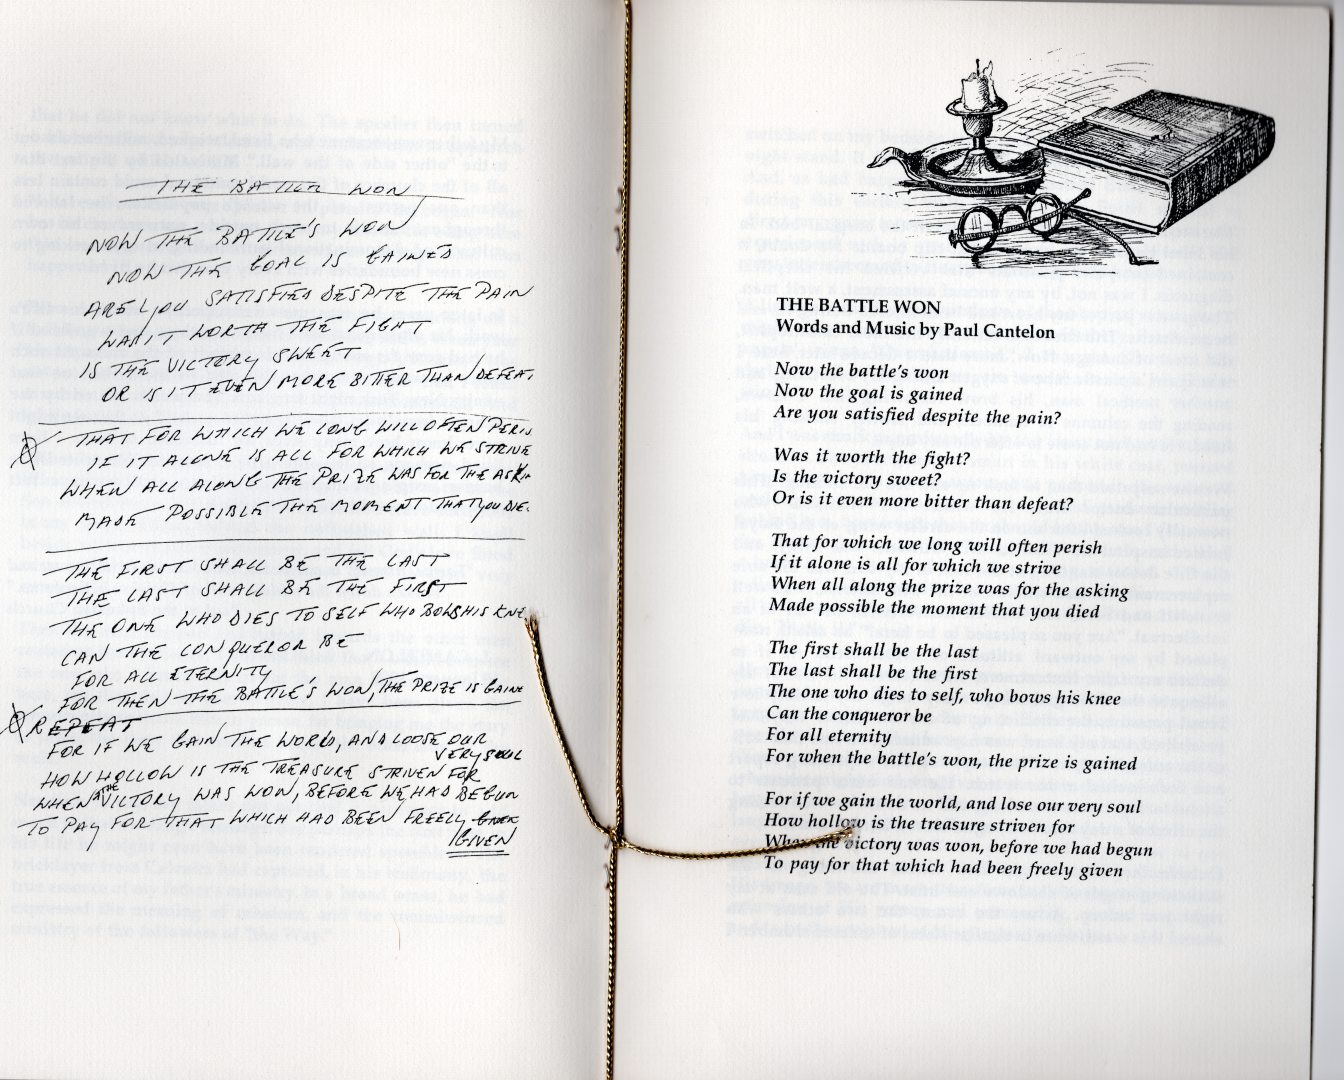 THE BATTLE WON
NOW THE BATTLE'S WON
NOW THE GOAL IS GAINED
ARE YOU SATISFIED DESPITE THE PAIN
WAS IT WORTH THE FIGHT
IS THE VICTORY SWEET
OR IS IT EVEN MORE BITTER THAN DEFEAT
THAT FOR WHICH WE LONG WILL OFTEN PERIS
IF IT ALONE IS ALL FOR WHICH WE STRIVE
WHEN ALL ALONG THE PRIZE WAS FOR THE ASKIN
MADE POSSIBLE THE MOMENT THAT YOU DIE
THE FIRST SHALL BE THE LAST
THE LAST SHALL BE THE FIRST
THE ONE WHO DIES TO SELF WHO BOWS HIS KNE
CAN THE CONQUEROR BE
FOR ALL ETERNITY
FOR THEN THE BATTLE'S WON, THE PRIZE IS GAINE
REPEAT
FOR IF WE GAIN THE WORLD, AND LOOSE OUR
VERY SOUL
HOW HOLLOW IS THE TREASURE STRIVEN FOR
WHEN THE VICTORY WAS WON, BEFORE WE HAD BEGUN
TO PAY FOR THAT WHICH HAD BEEN FREELY
GIVEN
THE BATTLE WON
Words and Music by Paul Cantelon
Now the battle's won
Now the goal is gained
Are you satisfied despite the pain?
Was it worth the fight?
Is the victory sweet?
Or is it even more bitter than defeat?
That for which we long will often perish
If it alone is all for which we strive
When all along the prize was for the asking
Made possible the moment that you died
The first shall be the last
The last shall be the first
The one who dies to self, who bows his knee
Can the conqueror be
For all eternity
For when the battle's won, the prize is gained
For if we gain the world, and lose our very soul
How hollow is the treasure striven for
When the victory was won, before we had begun
To pay for that which had been freely given